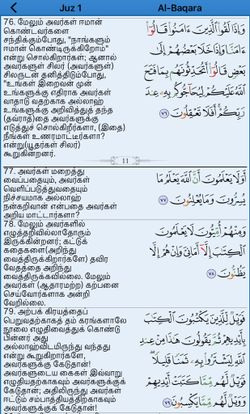 Juz 1
Al-Baqara
76. மேலும் அவர்கள் ஈமான்
கொண்டவர்களை
சந்திக்கும்போது, "நாங்களும்
ஈமான் கொண்டிருக்கிறோம்"
என்று சொல்கிறார்கள்; ஆனால்
அவர்களுள் சிலர் (அவர்களுள்)
சிலருடன் தனித்திடும்போது,
"உங்கள் இறைவன் முன்
உங்களுக்கு எதிராக அவர்கள்
வாதாடு வதற்காக அல்லாஹ்
உங்களுக்கு அறிவித்துத் தந்த
(தவ்ராத்)தை அவர்களுக்கு
எடுத்துச் சொல்கிறீர்களா, (இதை)
நீங்கள் உணரமாட்டீர்களா?
என்று(யூதர்கள் சிலர்)
கூறுகின்றனர்.
وَإِذَا لَقُوا۟ ٱلَّذِينَ ءَامَنُوا۟ قَالُوٓا۟
ءَامَنَّا وَإِذَا خَلَا بَعْضُهُمْ إِلَىٰ
بَعْضٍ قَالُوٓا۟ أَتُحَدِّثُونَهُم بِمَا فَتَحَ
ٱللَّهُ عَلَيْكُمْ لِيُحَآجُّوكُم بِهِۦ عِندَ
رَبِّكُمْ أَفَلَا تَعْقِلُونَ ٧٦
11
77. அவர்கள் மறைத்து
வைப்பதையும், அவர்கள்
வெளிப்படுத்துவதையும்
நிச்சமயாக அல்லாஹ்
நன்கறிவான் என்பதை அவர்கள்
அறிய மாட்டார்களா?
أَوَلَا يَعْلَمُونَ أَنَّ ٱللَّهَ يَعْلَمُ مَا
يُسِرُّونَ وَمَا يُعْلِنُونَ ٧٧
78. மேலும் அவர்களில்
எழுத்தறிவில்லாதோரும்
இருக்கின்றனர்; கட்டுக்
கதைகளை(அறிந்து
வைத்திருக்கிறார்களே) தவிர
வேதத்தை அறிந்து
வைத்திருக்கவில்லை. மேலும்
அவர்கள் (ஆதாரமற்ற) கற்பனை
செய்வோர்களாக அன்றி
வேறில்லை.
وَمِنْهُمْ أُمِّيُّونَ لَا يَعْلَمُونَ
ٱلْكِتَـٰبَ إِلَّآ أَمَانِىَّ وَإِنْ هُمْ إِلَّا
يَظُنُّونَ ٧٨
79. அற்பக் கிரயத்தைப்
பெறுவதற்காகத் தம் கரங்களாலே
நூலை எழுதிவைத்துக் கொண்டு
பின்னர் அது
அல்லாஹ்விடமிருந்து வந்தது
என்று கூறுகிறார்களே,
அவர்களுக்கு கேடுதான்!
அவர்களுடைய கைகள் இவ்வாறு
எழுதியதற்காகவும் அவர்களுக்குக்
கேடுதான்; அதிலிருந்து அவர்கள்
ஈட்டும் சம்பாத்தியத்திற்காகவும்
அவர்களுக்குக் கேடுதான்!
فَوَيْلٌ لِّلَّذِينَ يَكْتُبُونَ ٱلْكِتَـٰبَ
بِأَيْدِيهِمْ ثُمَّ يَقُولُونَ هَـٰذَا مِنْ عِندِ
ٱللَّهِ لِيَشْتَرُوا۟ بِهِۦ ثَمَنًا قَلِيلًا
فَوَيْلٌ لَّهُم مِّمَّا كَتَبَتْ أَيْدِيهِمْ
وَوَيْلٌ لَّهُم مِّمَّا يَكْسِبُونَ ٧٩